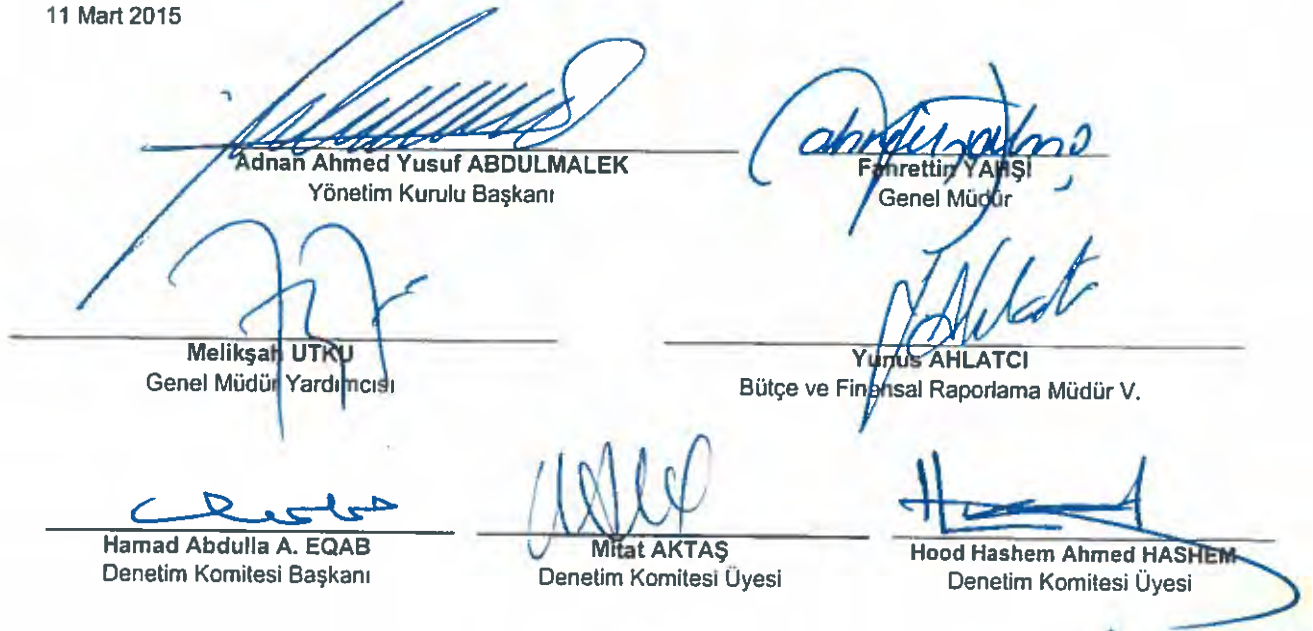 11 Mart 2015
Adnan Ahmed Yusuf ABDULMALEK
Yönetim Kurulu Başkanı
Fahrettin YAHŞİ
Genel Müdür
Melikşah UTKU
Genel Müdür Yardımcısı
Yunus AHLATCI
Bütçe ve Finansal Raporlama Müdür V.
Hamad Abdulla A. EQAB
Denetim Komitesi Başkanı
Mitat AKTAŞ
Denetim Komitesi Üyesi
Hood Hashem Ahmed HASHEM
Denetim Komitesi Üyesi